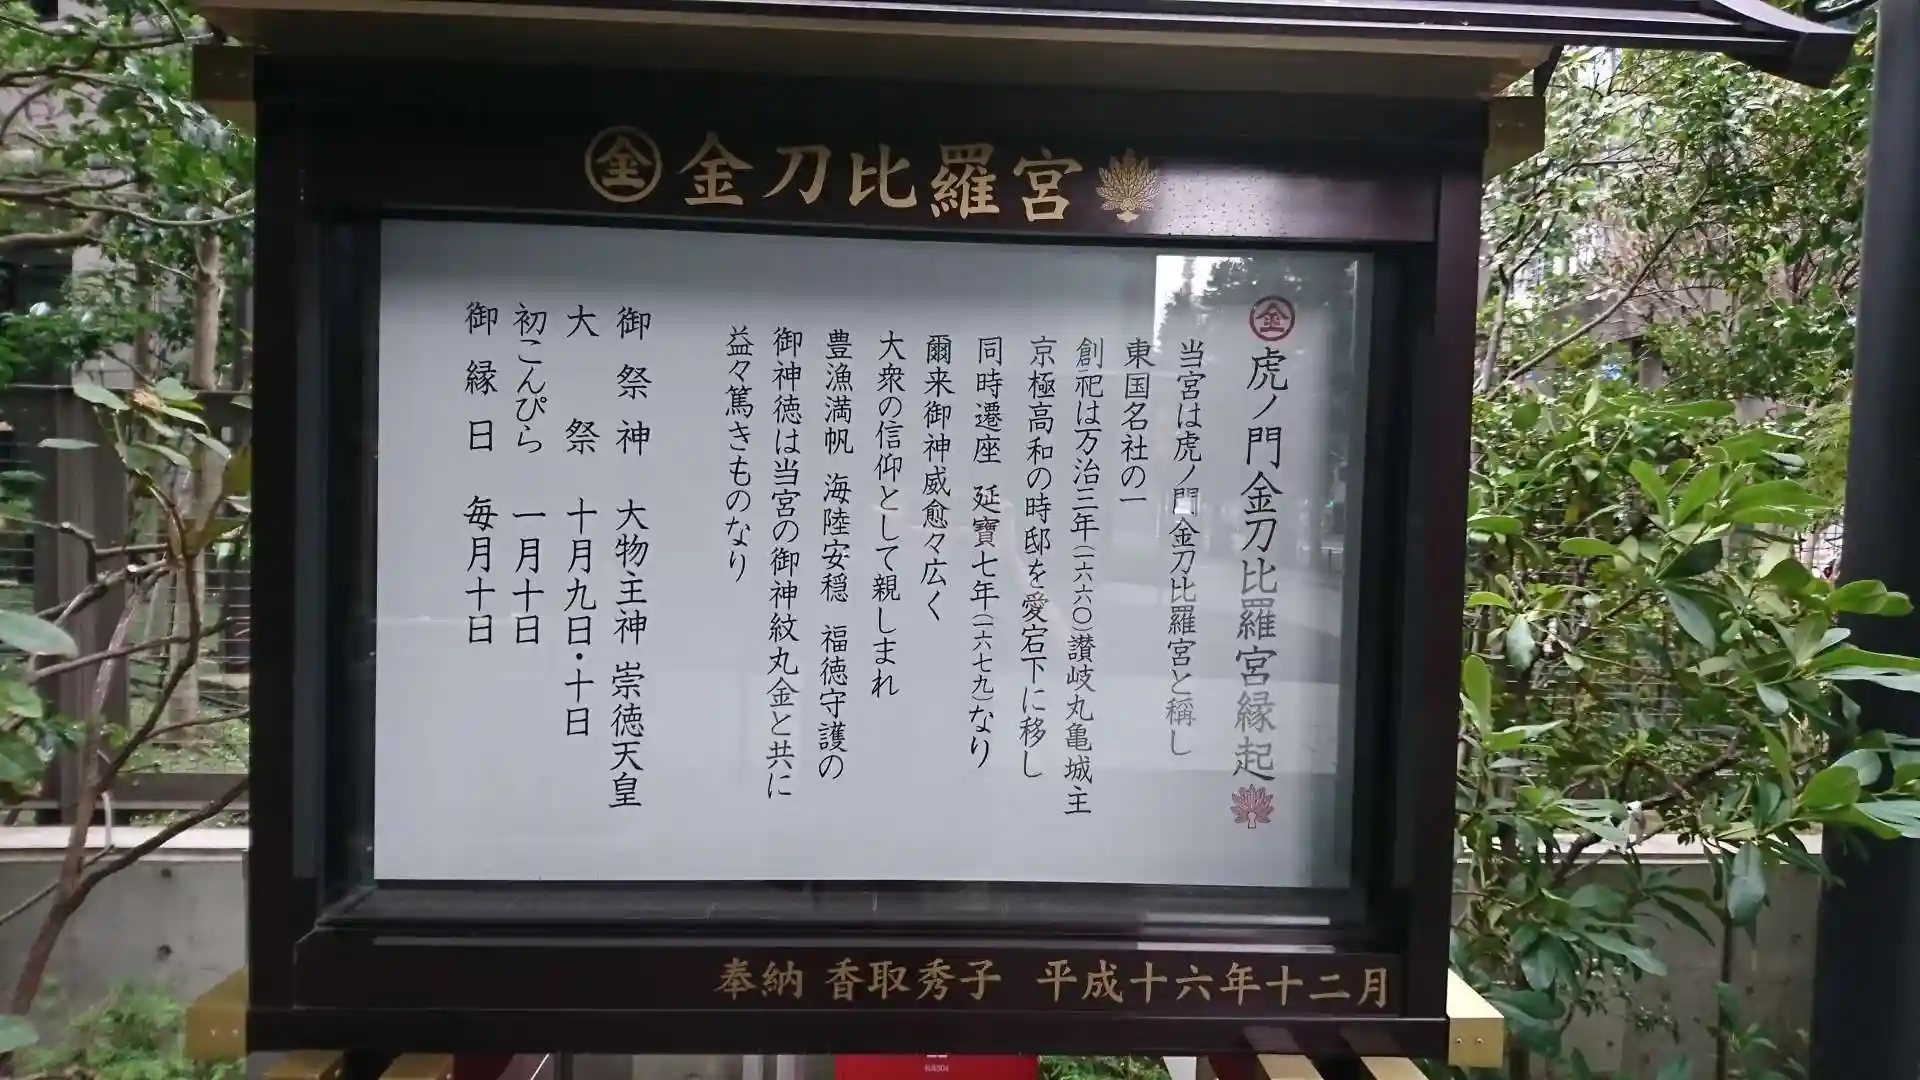 金 金刀比羅宮
金 虎ノ門金刀比羅宮縁起
当宮は虎ノ門金刀比羅宮と稱し
東国名社の一
創祀は万治三年(一六六〇)讃岐丸亀城主
京極高和の時邸を愛宕下に移し
同時遷座 延寶七年(一六七九)なり
爾来御神威愈々広く
大衆の信仰として親しまれ
豊漁満帆 海陸安穏 福徳守護の
御神徳は当宮の御神紋丸金と共に
益々篤きものなり
御祭神 大物主神 崇徳天皇
大祭 十月九日・十日
初こんぴら 一月十日
御縁日 毎月十日
奉納 香取秀子 平成十六年十二月